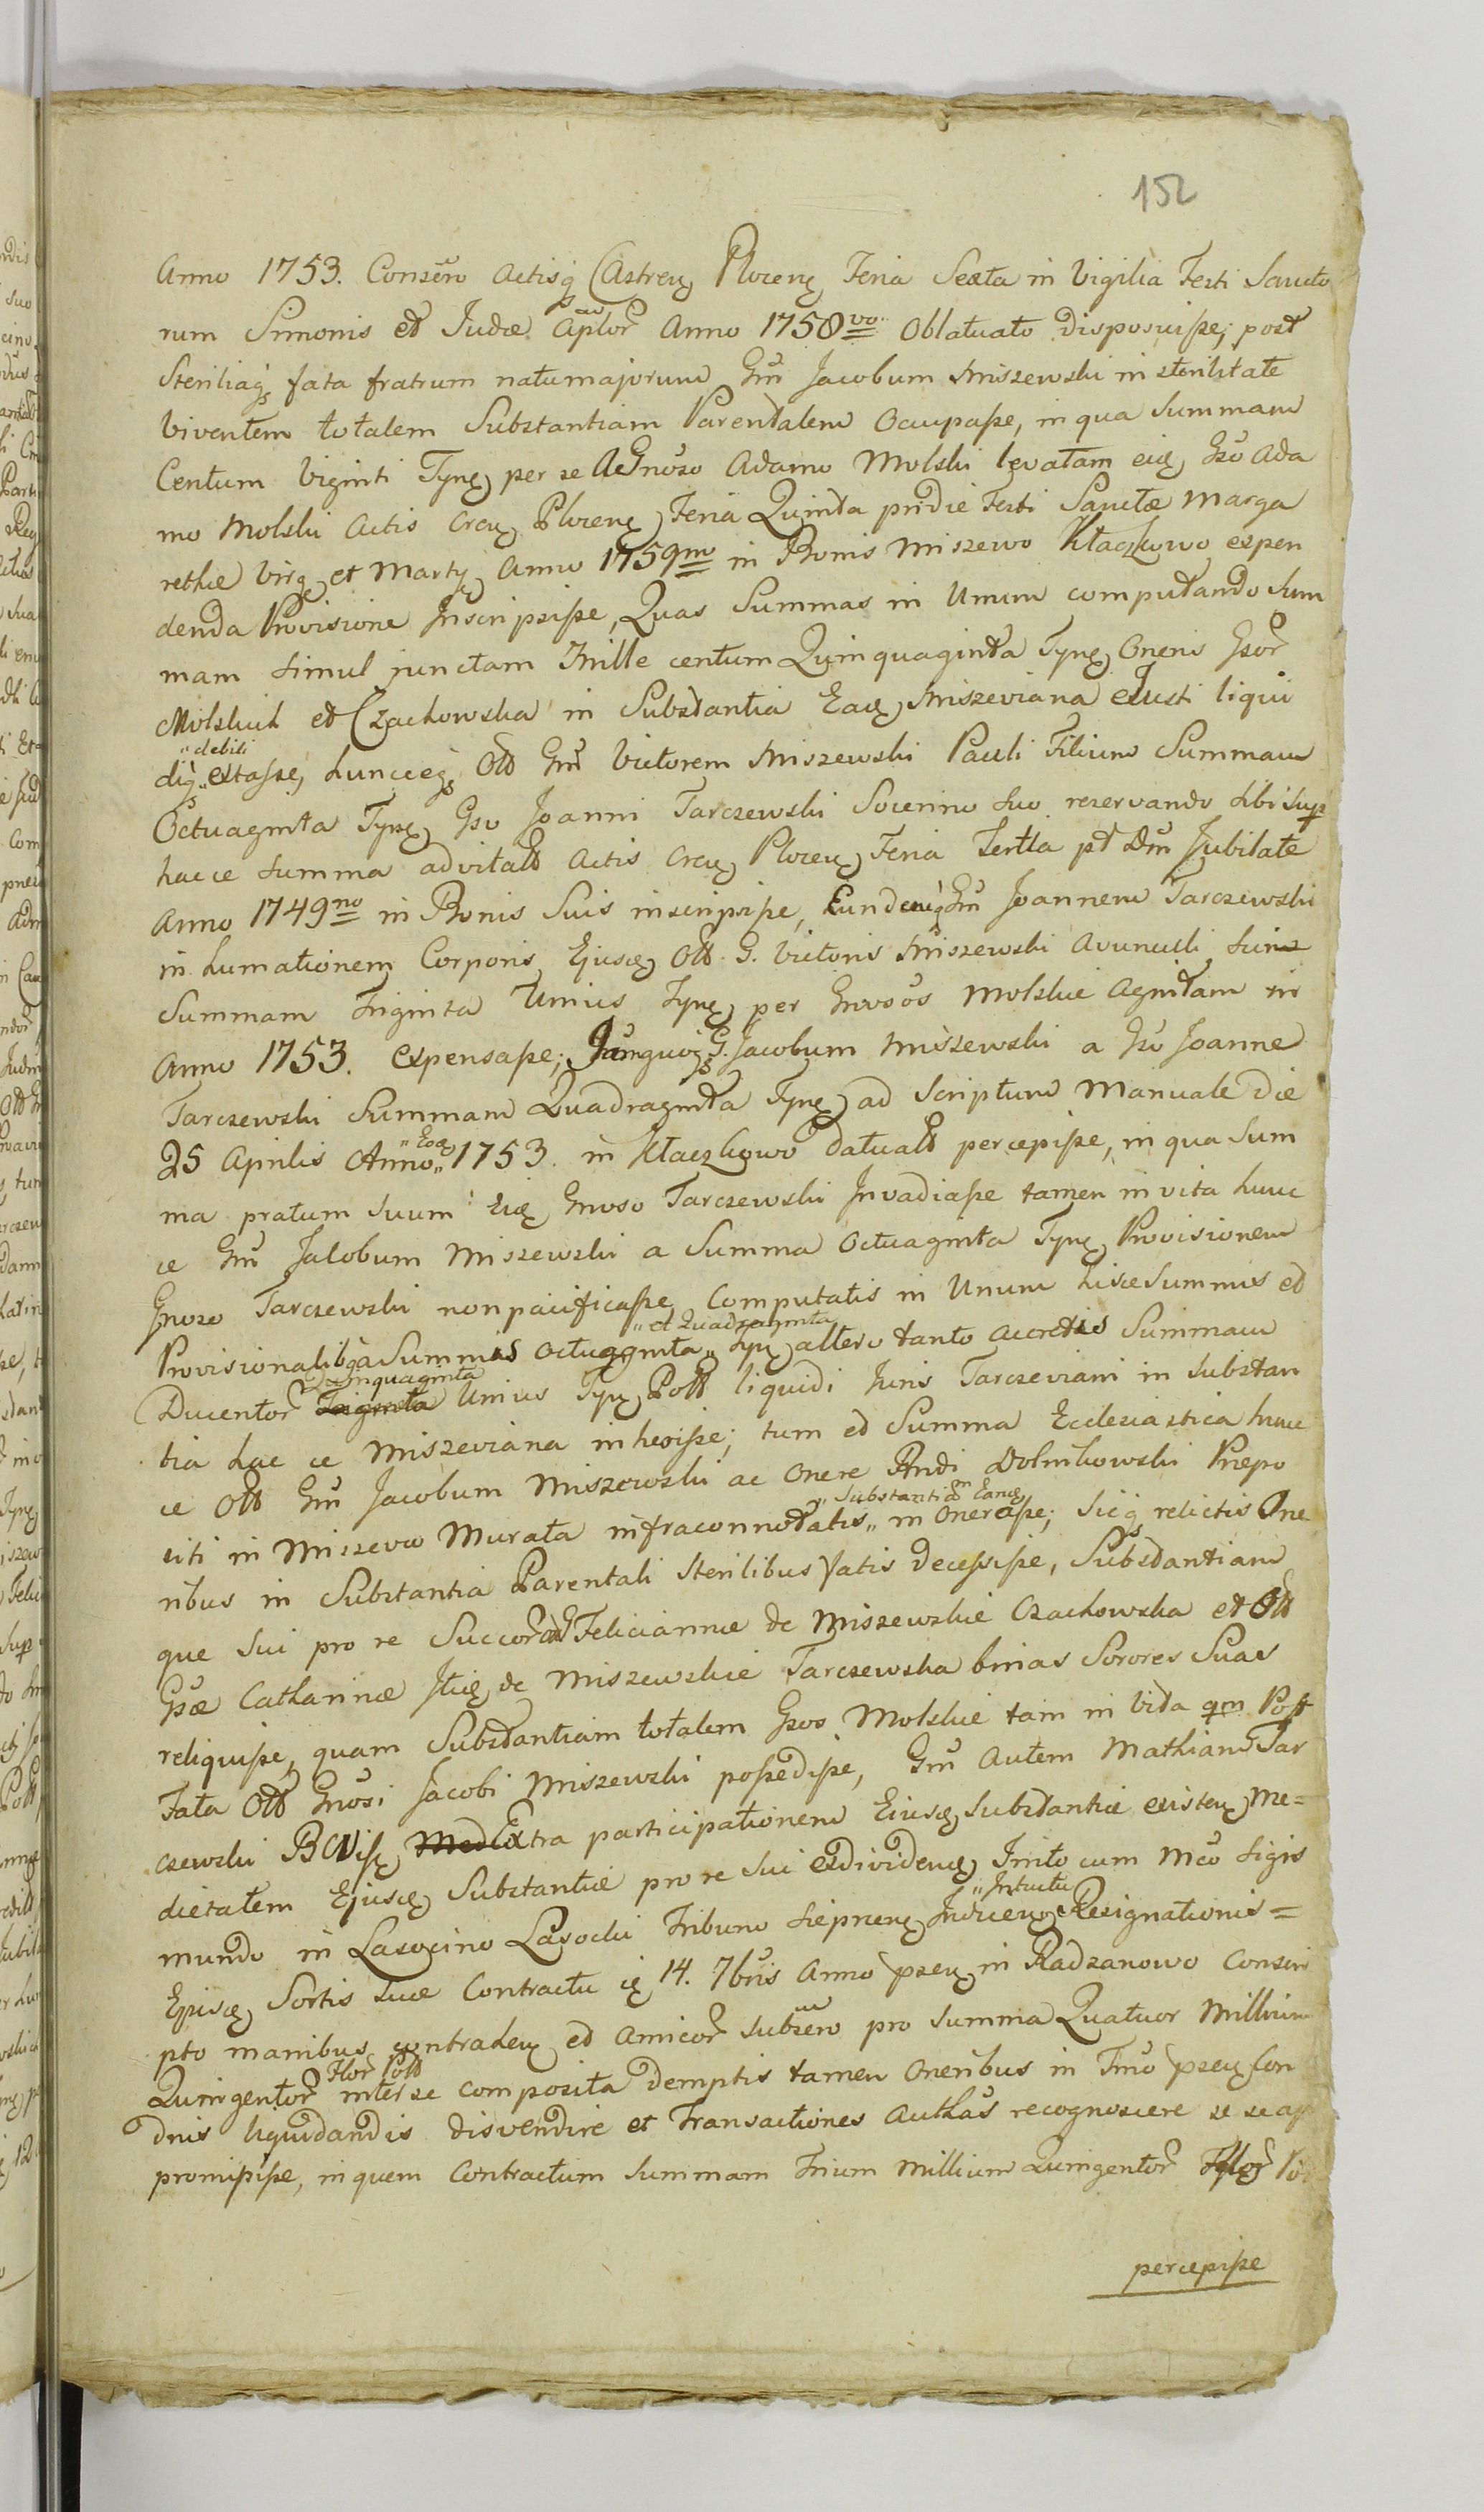 152
Anno 1753. Conscñõ Actisq̃ Castren̨ Plocen̨ Feria Sexta in Vigilia Festi Sancto
rum Simonis et Judæ Aplor̃ Anno 1758vo Oblatuato disposuisse; post
Steriliaq̨ fata fratrum natumajorum Gm̃ Jacobum Miszewski in sterilitate
viventem totalem Substantiam Parentalem Occupasse, in qua Summam
Centum Viginti Tynę per se A Gnõso Adamo Molski levatam eię Gsõ Ada
mo Molski Actis Crcę Plocenę Feria Quinta pridie Festi Sanctæ Marga
rethæ Virg̨ et Martę Anno 1759no in Bonis Miszewo Kłaczkowo expen
denda Provisione Inscripsisse, Quas Summas in Unum computando Sum
mam Simul junctam Mille centum Quinquaginta Tynę Oneris Gsor̃
Molskich et Czachowska in Substantia Eacę Miszeviana et Justi liqui
diq̨ „debiti extasse, huncceq̨ Olt̃ Gm̃ Victorem Miszewski Pauli Filium Summam
Octuaginta Tynę Gso Joanni Tarczewski Socerino Suo reservando Sibi Sup
hacce Summa advitalt̃ Actis Crcę Plocenę Feria Tertia pt̃ Dm̃ Jubilate
Anno 1749no in Bonis Suis inscripsisse, Eundemq̨ Gm̃ Joannem Tarczewski
in humationem Corporis Ejuscę Olt̃ G. Victoris Miszewski Avunculi Sui
Summam Triginta Unius Tynę per Gnosõs Molskie Agnitam in
Anno 1753. Expensasse; G. Jacobum Miszewski a Gsõ Joanne
Tarczewski Summam Quadraginta Tynę ad Scriptum Manuale die
25 Aprilis Anno „Eoę„ 1753. in Kłaczkowo datualt̃ percepisse, in qua Sum
ma pratum Suum Eię Gnoso Tarczewski Invadiasse tamen in vita hunc
ce Gm̃ Jacobum Miszewski a Summa Octuaginta Tynę Provisionem
Gnoso Tarczewski non pacificasse Computatis in Unum hisce Summis et
Provisionalibq̨ à Summis Octuaginta „et Quadraginta„ Tynę altero tanto accretis Summam
Ducentor̃ Quinquaginta Unius Tynę Polt̃ liquidi Juris Tarczeviani in Substan
tia hac ce Miszeviana inhesisse; tum et Summa Ecclesiastica hunc
ce Olt̃ Gm̃ Jacobum Miszewski ac Onere Rndi Dolnikowski Præpo
siti in Miszewo Murata infraconnotatis „Substantiam Eancę„ Onerasse; Sicq̨ relictis One
ribus in Substantia Parentali Sterilibus fatis decessisse, Substantiam
que Sui pro re Succor̃ G Felicianne de Miszewskie Czachowska et Olt̃
Gsæ Catharinæ Itię de Miszewskie Tarczewska binas Sorores Suas
reliquisse, quam Substantiam totalem Gsos Molskie tam in Vita qm Post
Fata Olt̃ Gnosi Jacobi Miszewski possedisse, Gm̃ Autem Mathiam Tar
czewski Extra participationem Eiuscę Substantiæ existenę Me=
dietatem Ejuscę Substantiæ pro re Sui exdividenę Inito cum Mco Sigis
mundo in Lasocino Lasocki Tribuno Sieprcenę „Intuitu Resignationis=
Ejuscę Sortis Suæ Contractu ię 14. 7bris Anno psenę in Radzanowo Conscri
pto manibus contrahenę et Amicor̃ Subscr̃o pro Summa Quatuor Millium
Quingentor̃ Flor̃ Polt̃ inter se composita demptis tamen Oneribus in Tm̃o psenę Con
dnis liquidandis disvendire et Transactiones Authãs recognoscere se se
promisisse, in quem Contractum Summam Trium Millium Quingentor̃ Flor̃
percepisse